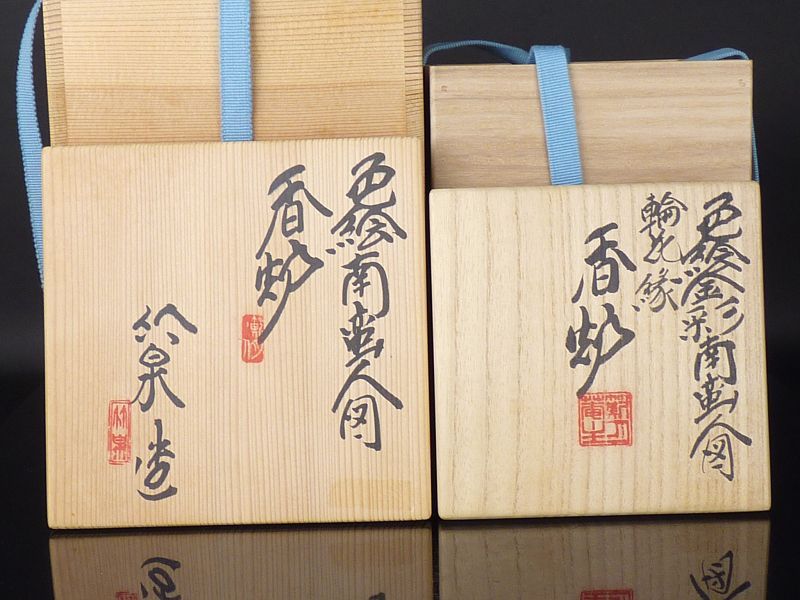 色絵南蛮人図
香炉
竹泉造
竹泉
色絵金彩南蛮人図
輪花縁
香炉